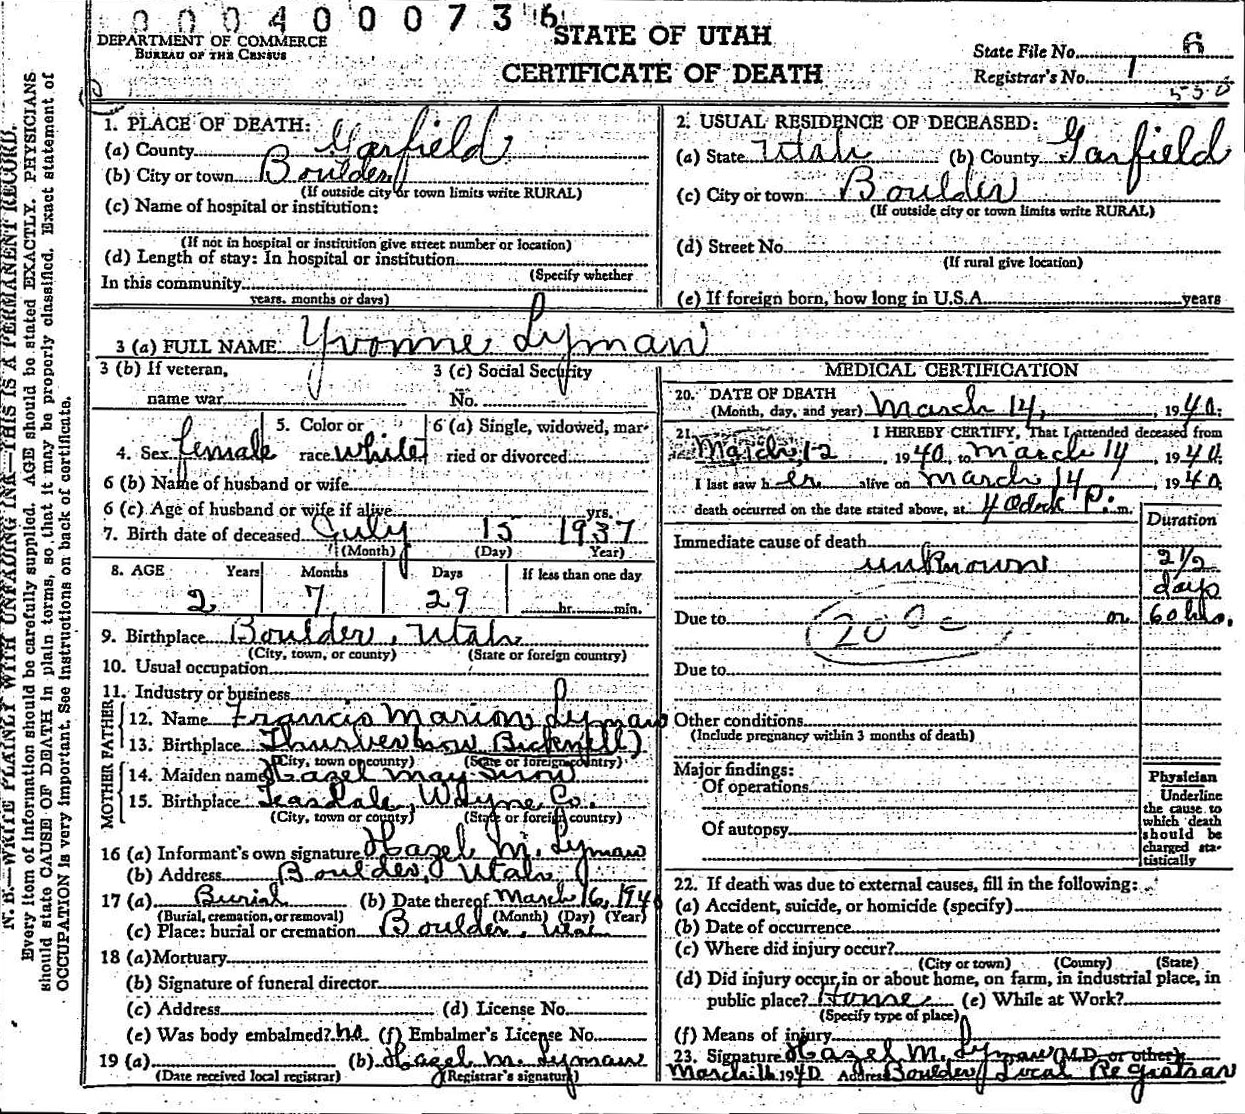 0 0 0 4 0 0 0 7 3 6
DEPARTMENT OF COMMERCE
BUREAU OF THE CENSUS
STATE OF UTAH
CERTIFICATE OF DEATH
State File No. 6
Registrar's No. 1
530
1. PLACE OF DEATH:
(a) County Garfield
(b) City or town Boulder
(If outside city or town limits write RURAL)
(c) Name of hospital or institution:
(If not in hospital or institution give street number or location)
(d) Length of stay: In hospital or institution
(Specify whether
In this community
years, months or days)
2. USUAL RESIDENCE OF DECEASED:
(a) State Utah (b) County Garfield
(c) City or town Boulder
(If outside city or town limits write RURAL)
(d) Street No.
(If rural give location)
(e) If foreign born, how long in U.S.A. years
3 (a) FULL NAME Yvonne Lyman
3 (b) If veteran,
name war
3 (c) Social Security
No.
4. Sex female
5. Color or
race white
6 (a) Single, widowed, mar-
ried or divorced
6 (b) Name of husband or wife
6 (c) Age of husband or wife if alive yrs.
7. Birth date of deceased July 15 1937
(Month) (Day) Year)
8. AGE Years Months Days If less than one day
2 7 29 hr. min.
9. Birthplace Boulder, Utah
(City, town, or county) (State or foreign country)
10. Usual occupation
11. Industry or business
FATHER
12. Name Francis Marion Lyman
13. Birthplace Thurber (now Bicknell)
(City, town or county) (State or foreign country)
MOTHER
14. Maiden name Hazel May Snow
15. Birthplace Teasdale, Wayne Co.
(City, town or county) (State or foreign country)
16 (a) Informant's own signature Hazel M. Lyman
(b) Address Boulder, Utah
17 (a) Burial (b) Date thereof March 16, 1940
(Burial, cremation, or removal) (Month) (Day) (Year)
(c) Place: burial or cremation Boulder, Utah
18 (a) Mortuary
(b) Signature of funeral director
(c) Address (d) License No.
(e) Was body embalmed? no (f) Embalmer's License No.
19 (a) (b) Hazel M. Lyman
(Date received local registrar) (Registrar's signature)
MEDICAL CERTIFICATION
20. DATE OF DEATH
(Month, day, and year) March 14, 1940.
21. I HEREBY CERTIFY, That I attended deceased from
March 12, 1940, to March 14, 1940.
I last saw her alive on March 14, 1940
death occurred on the date stated above, at 4 Oclock P. m.
Duration
Immediate cause of death
unknown 2 1/2
days
Due to 200 or 60 hrs.
Due to
Other conditions
(Include pregnancy within 3 months of death)
Major findings:
Of operations
Of autopsy
Physician
Underline
the cause to
which death
should be
charged sta-
tistically
22. If death was due to external causes, fill in the following:
(a) Accident, suicide, or homicide (specify)
(b) Date of occurrence
(c) Where did injury occur?
(City or town) (County) (State)
(d) Did injury occur in or about home, on farm, in industrial place, in
public place? Home (e) While at Work?
(Specify type of place)
(f) Means of injury
23. Signature Hazel M. Lyman (M.D. or other)
March 16 1940 Address Boulder, Local Registrar
N. B.—WRITE PLAINLY WITH UNFADING INK—THIS IS A PERMANENT RECORD.
Every item of information should be carefully supplied. AGE should be stated EXACTLY. PHYSICIANS
should state CAUSE OF DEATH in plain terms, so that it may be properly classified. Exact statement of
OCCUPATION is very important. See instructions on back of certificate.